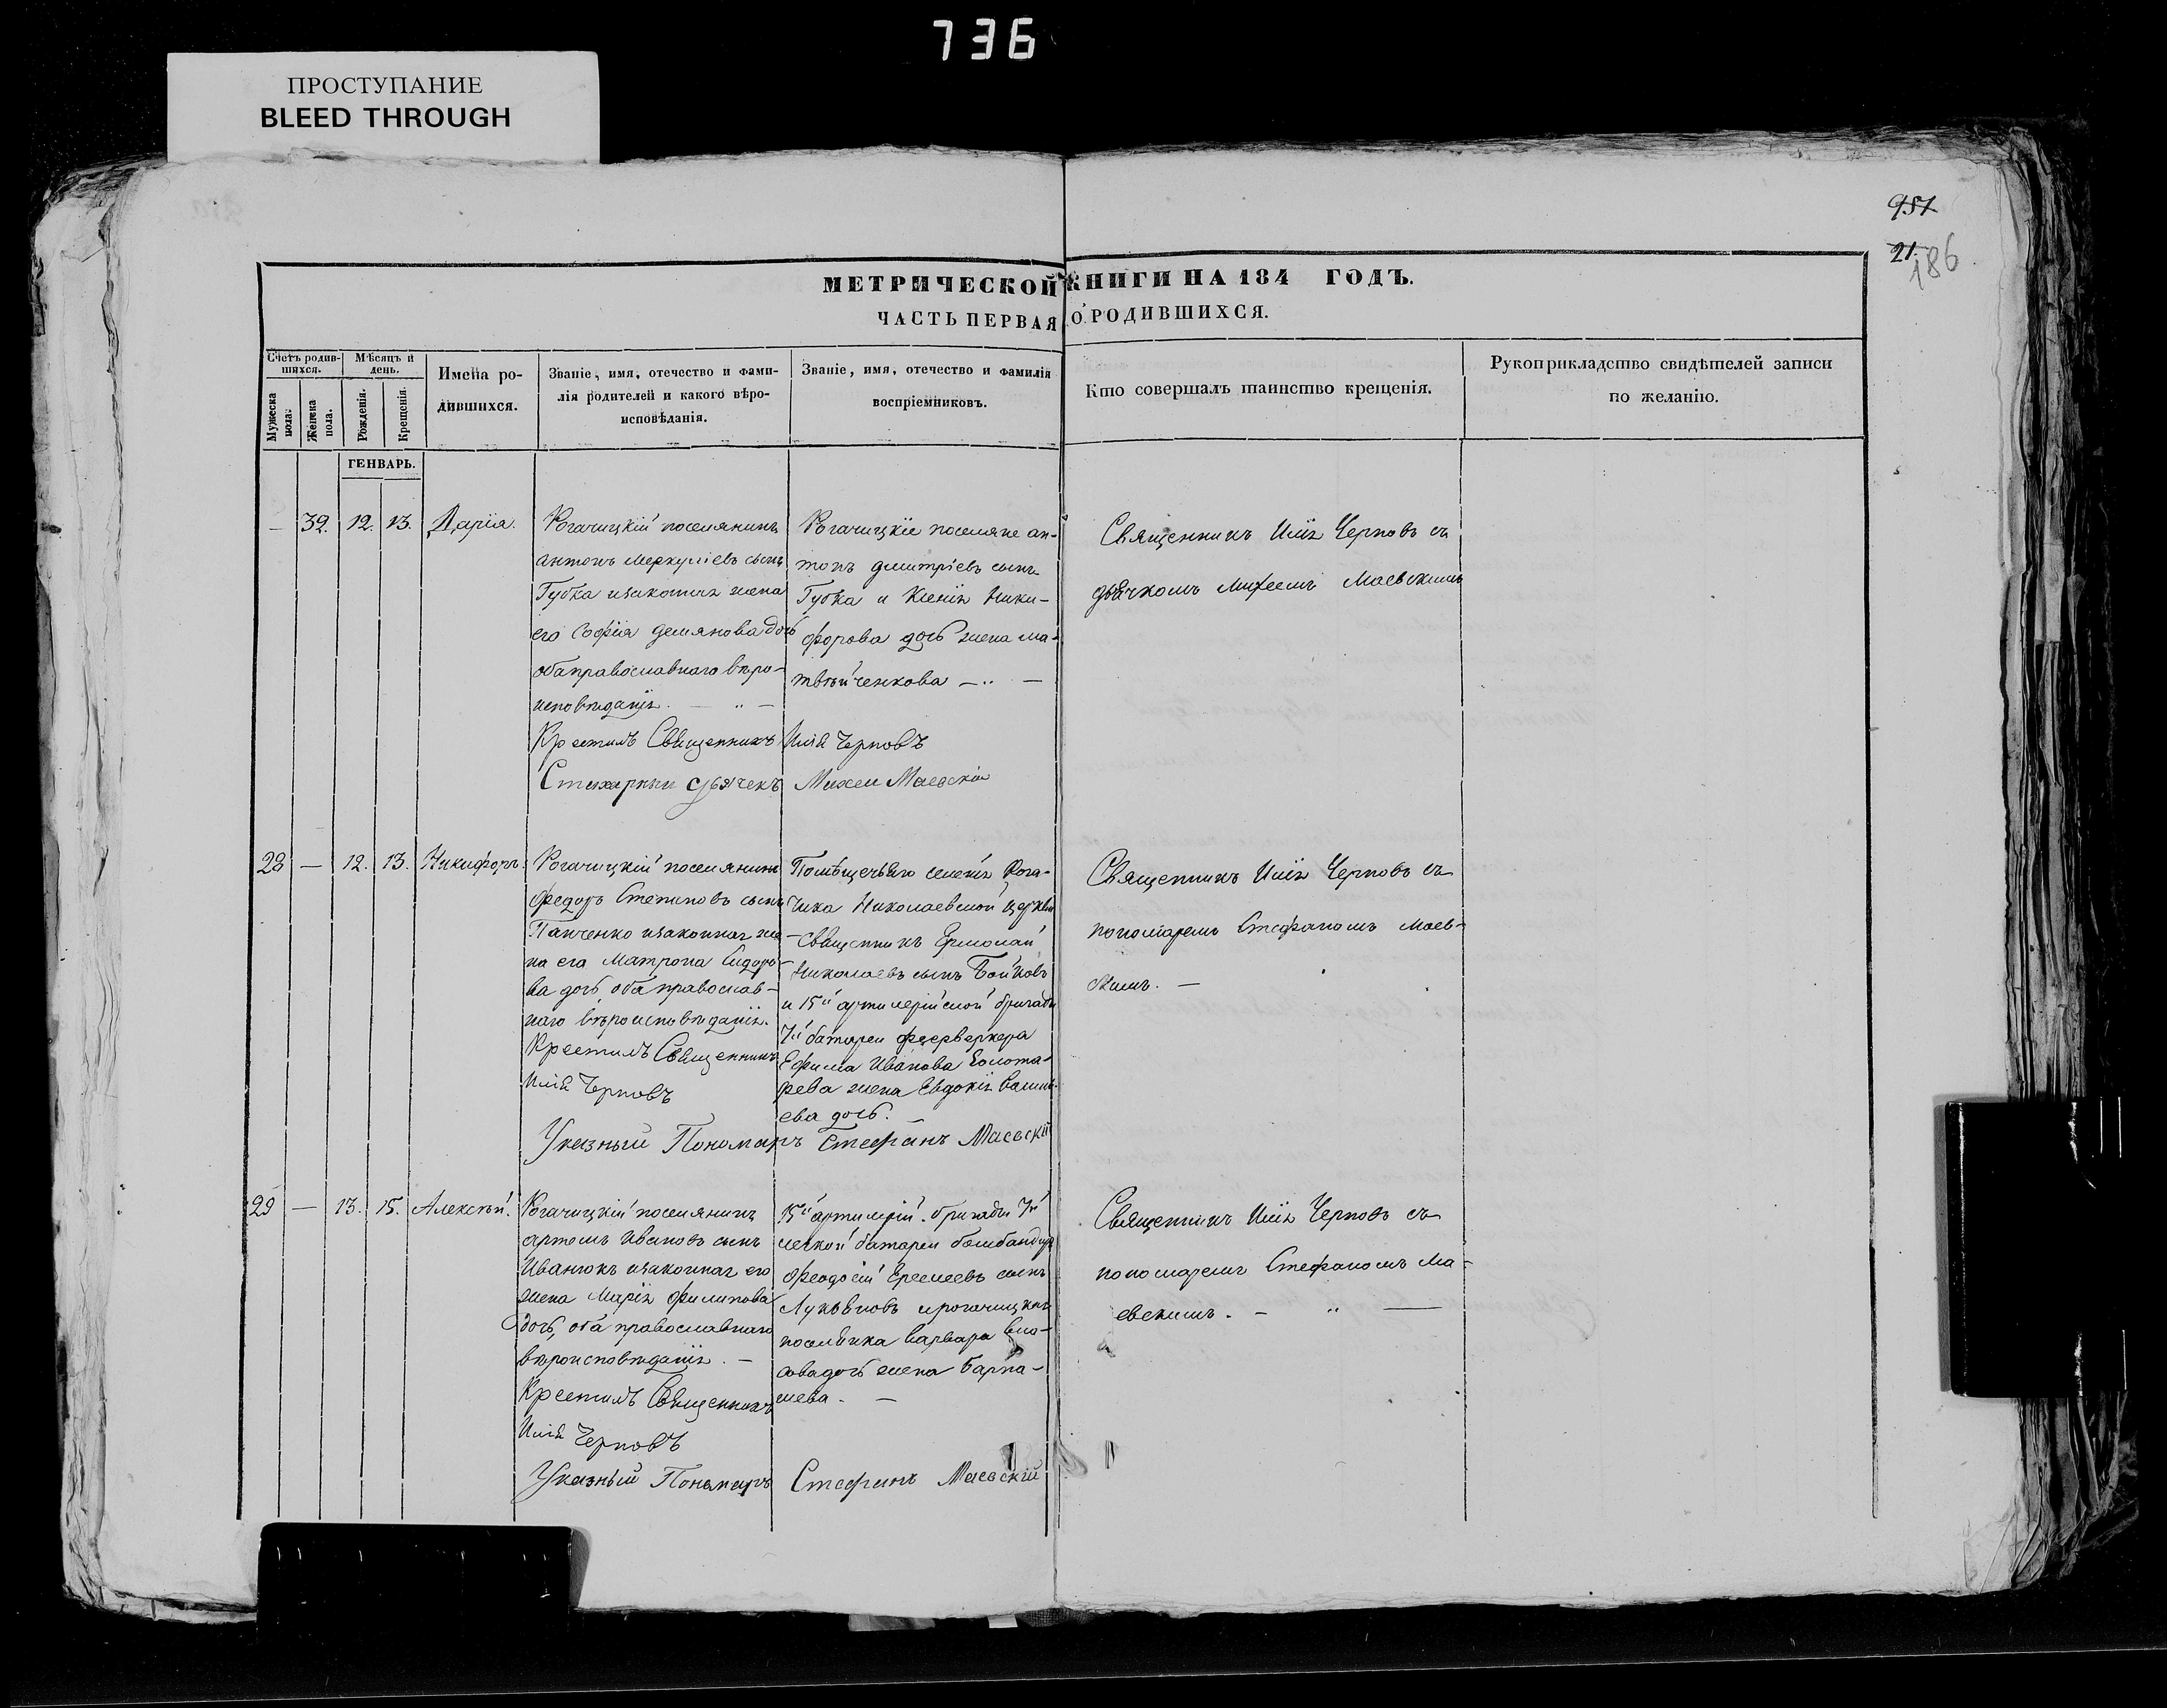 736
ПРОСТУПАНИЕ
BLEED THROUGH
951
21.
186
МЕТРИЧЕСКОЙ КНИГИ НА 184 ГОДЪ.
ЧАСТЬ ПЕРВАЯ О РОДИВШИХСЯ.
Счетъ родив-
шихся.
Мужеска
пола.
Женска
пола.
Мѣсяцъ и
день.
Рожденія.
Крещенія.
Имена ро-
дившихся.
Званіе, имя, отечество и фами-
лія родителей и какого вѣро-
исповѣданія.
Званіе, имя, отечество и фамилія
воспріемниковъ.
Кто совершалъ таинство крещенія.
Рукоприкладство свидѣтелей записи
по желанію.
ГЕНВАРЬ.
— 39. 12. 13. Дарія.
Рогачицкій поселянинъ
антонъ Меркуліевъ сынъ
Губка изаконная жена
его Софія Демянова дочь
оба православнаго вѣро-
исповѣданія. — " —
Рогачицкіе поселяне ан-
тонъ дмитріевъ сынъ
Губка и Ксенія Ники-
форова дочь жена ма-
твѣйченкова — " —
Крестилъ Священникъ Илія Черновъ
Стихарный дьячекъ Михеи Маевскій
Священникъ Илія Черновъ съ
дьячкомъ Михеемъ Маевскимъ
28 — 12. 13. Никифоръ.
Рогачицкій поселянинъ
федоръ Степановъ сынъ
Панченко изаконная же-
на его Матрона Сидоро-
ва дочь, оба православ-
наго вѣроисповѣданія.
Крестилъ Священникъ
Илія Черновъ
Помѣщечьяго селенія Рога-
чика Николаевской церкви
священникъ Ермолай
Николаевъ сынъ Бойковъ
и 15й артилерійской бригады
7й батареи феерверкера
Ефима Иванова Золота-
рева жена Евдокія Василь-
ева дочь.
Указный Пономарь Стефанъ Маевскій
Священникъ Илія Черновъ съ
пономаремъ Стефаномъ Маев-
скимъ. —
29 — 13. 15. Алексѣй.
Рогачицкій поселянинъ
артемъ Ивановъ сынъ
Иванюкъ изаконная его
жена Марія филипова
дочь, оба православнаго
вѣроисповѣданія. —
Крестилъ Священникъ
Илія Черновъ
15й артилерій. бригады 7й
легкой батареи бомбандиръ
феодосій Еремеевъ сынъ
Лукьяновъ ирогачицкая
поселянка Варвара Вла-
сова дочь жена
Указный Пономарь Стефанъ Маевскій
Священникъ Илія Черновъ съ
пономаремъ Стефаномъ Ма-
евскимъ. — " —